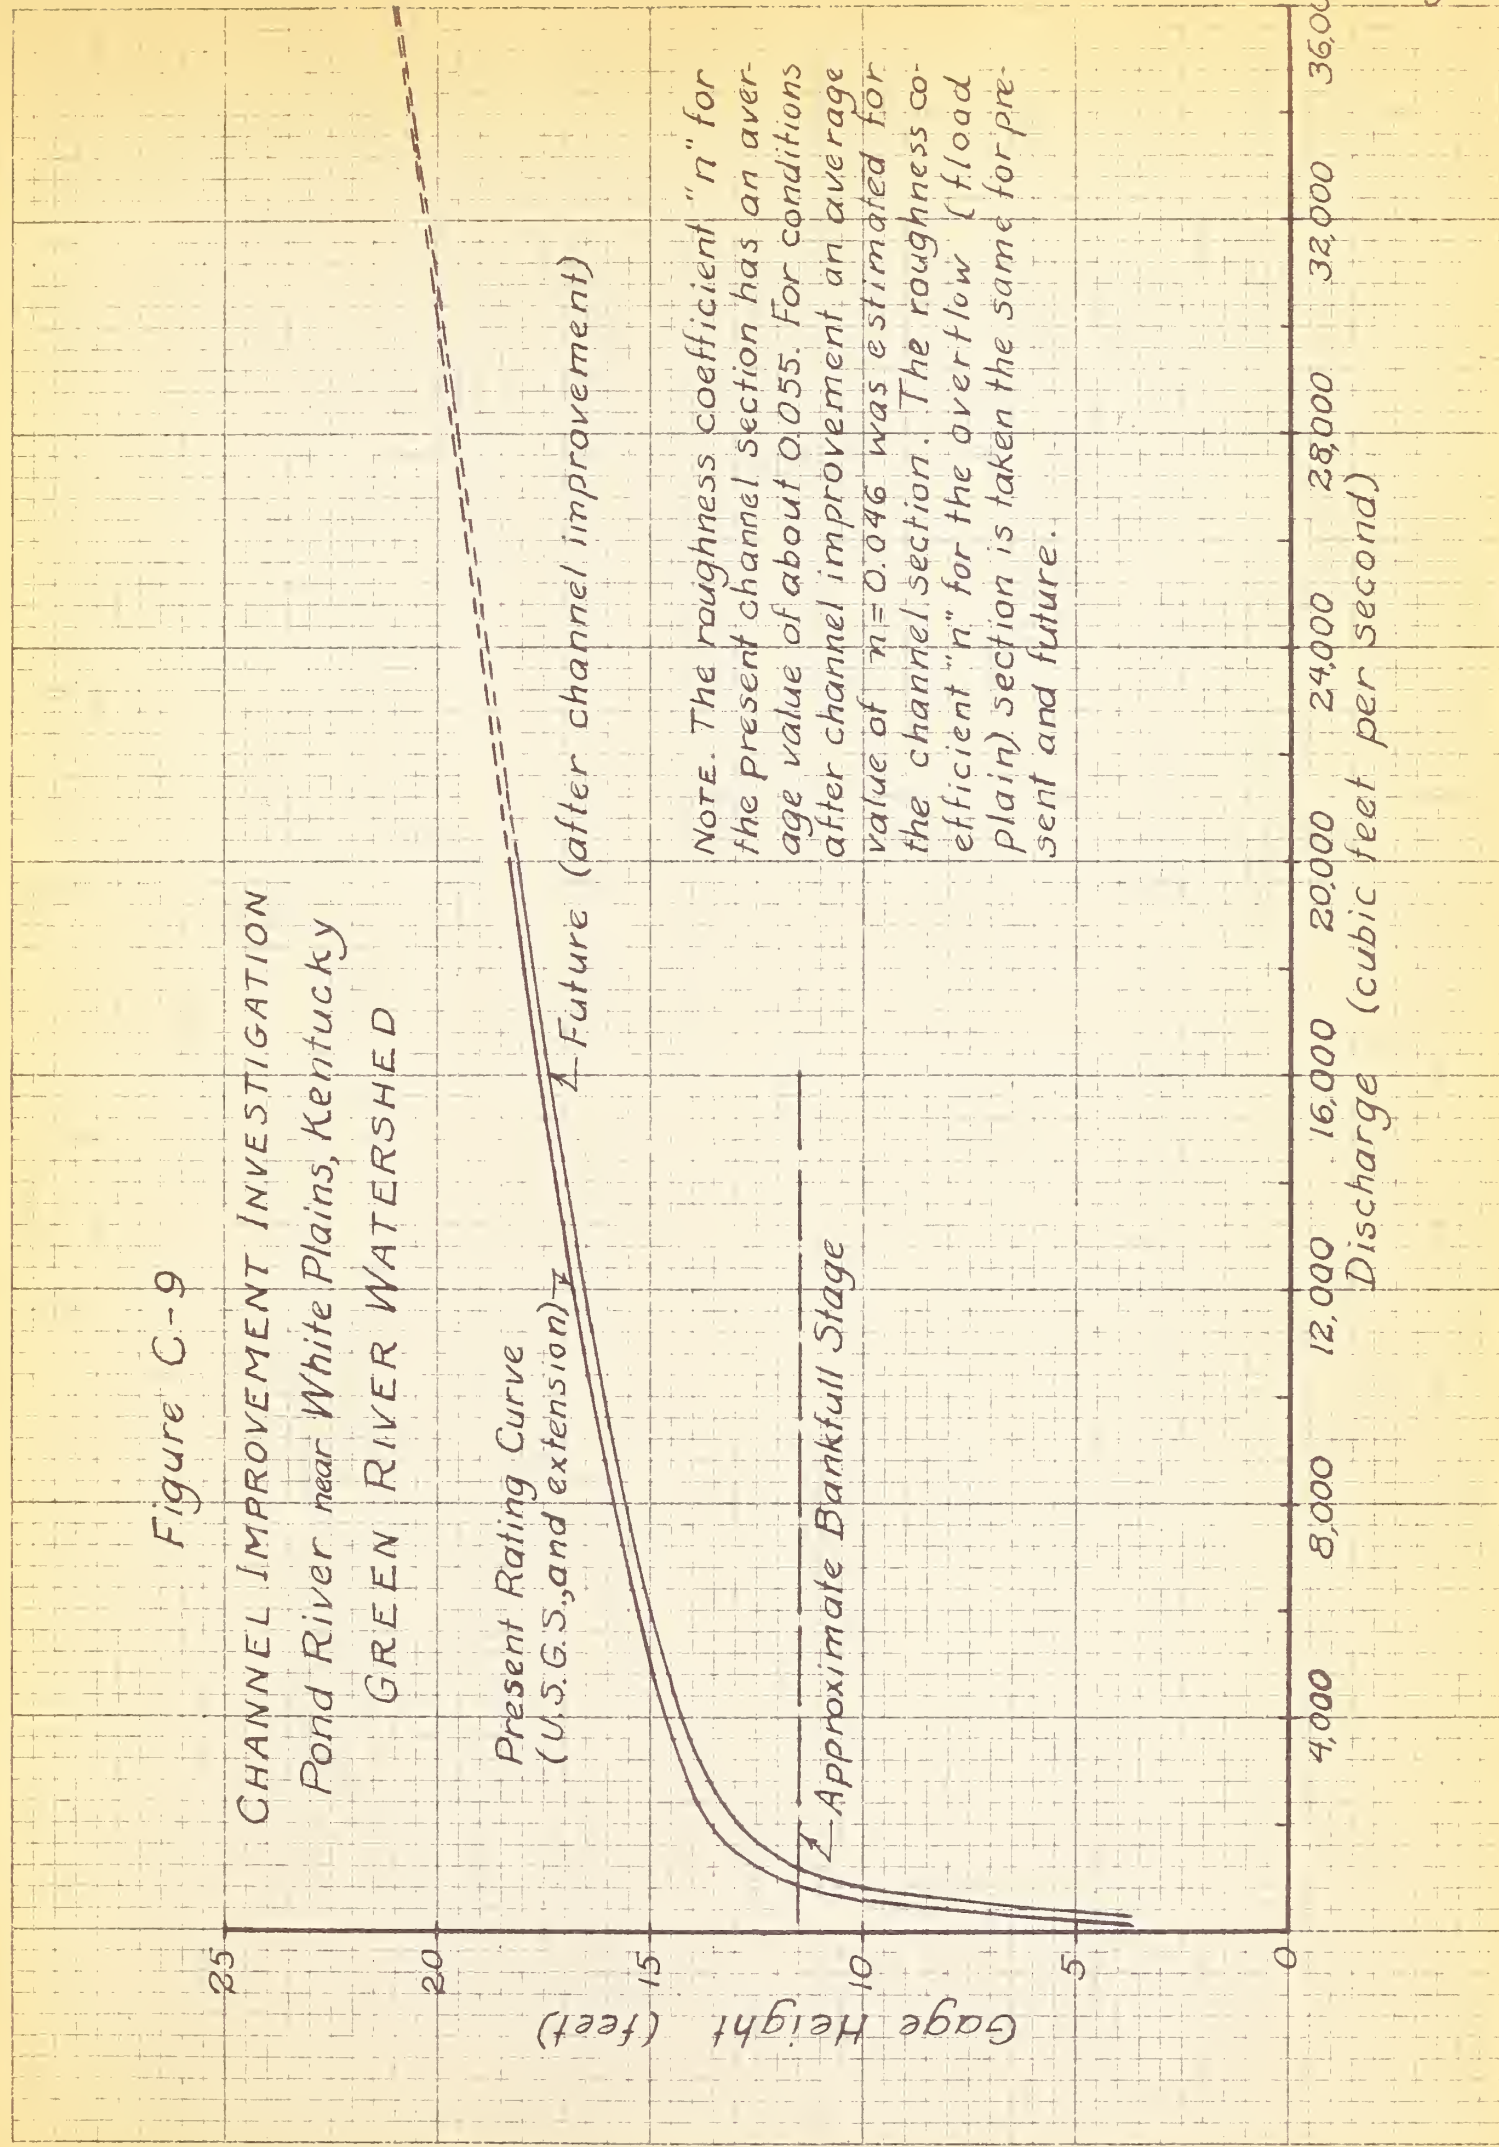 Figure C-9
CHANNEL IMPROVEMENT INVESTIGATION
Pond River near White Plains, Kentucky
GREEN RIVER WATERSHED
Present Rating Curve
(U.S.G.S., and extension)
Future (after channel improvement)
Approximate Bankfull Stage
NOTE. The roughness coefficient "n" for
the present channel section has an aver-
age value of about 0.055. For conditions
after channel improvement an average
value of n=0.046 was estimated for
the channel section. The roughness co-
efficient "n" for the overflow (flood
plain) section is taken the same for pre-
sent and future.
Gage Height (feet)
25
20
15
10
5
0
4,000 8,000 12,000 16,000 20,000 24,000 28,000 32,000
Discharge (cubic feet per second)